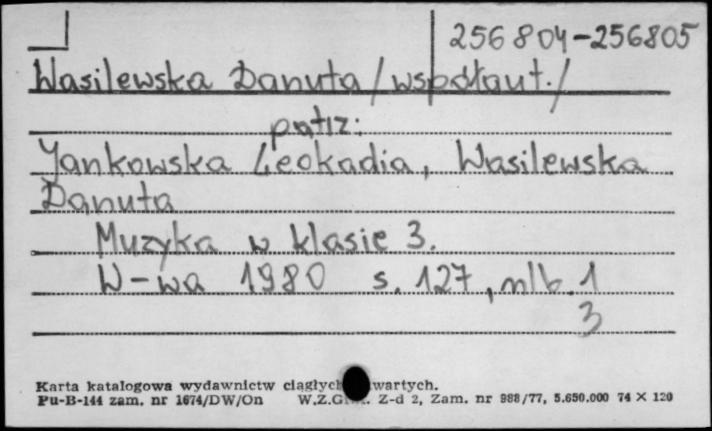 256804-256805
Wasilewska Danuta /współaut./
patrz:
Jankowska Leokadia, Wasilewska
Danuta
Muzyka w klasie 3.
W-wa 1980 s. 127, nlb. 1
3
Karta katalogowa wydawnictw ciągłych wartych.
Pu-B-144 zam. nr 1674/DW/On W.Z.G Z-d 2, Zam. nr 988/77, 5.650.000 74 X 120